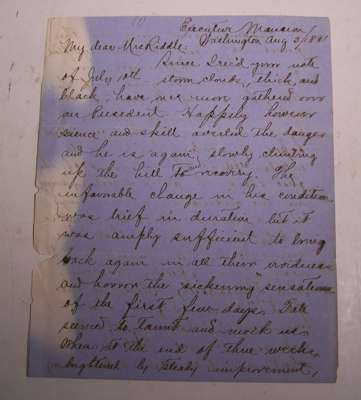 (1)
Executive Mansion
Washington Aug 3, 1881
My dear Mr Riddle.
Since I rec'd your note
of July 10th storm clouds, thick and
black, have once more gathered over
our President. Happily however
science and skill averted the danger
and he is again, slowly climbing
up the hill to recovery. The
unfavorable change in his condition
was brief in duration but it
was amply sufficient to bring
back again in all their vividness
and horror the "sickening" sensations
of the first few days. Fate
seemed to taunt and mock us
when at the end of three weeks,
brightened by steady improvement,